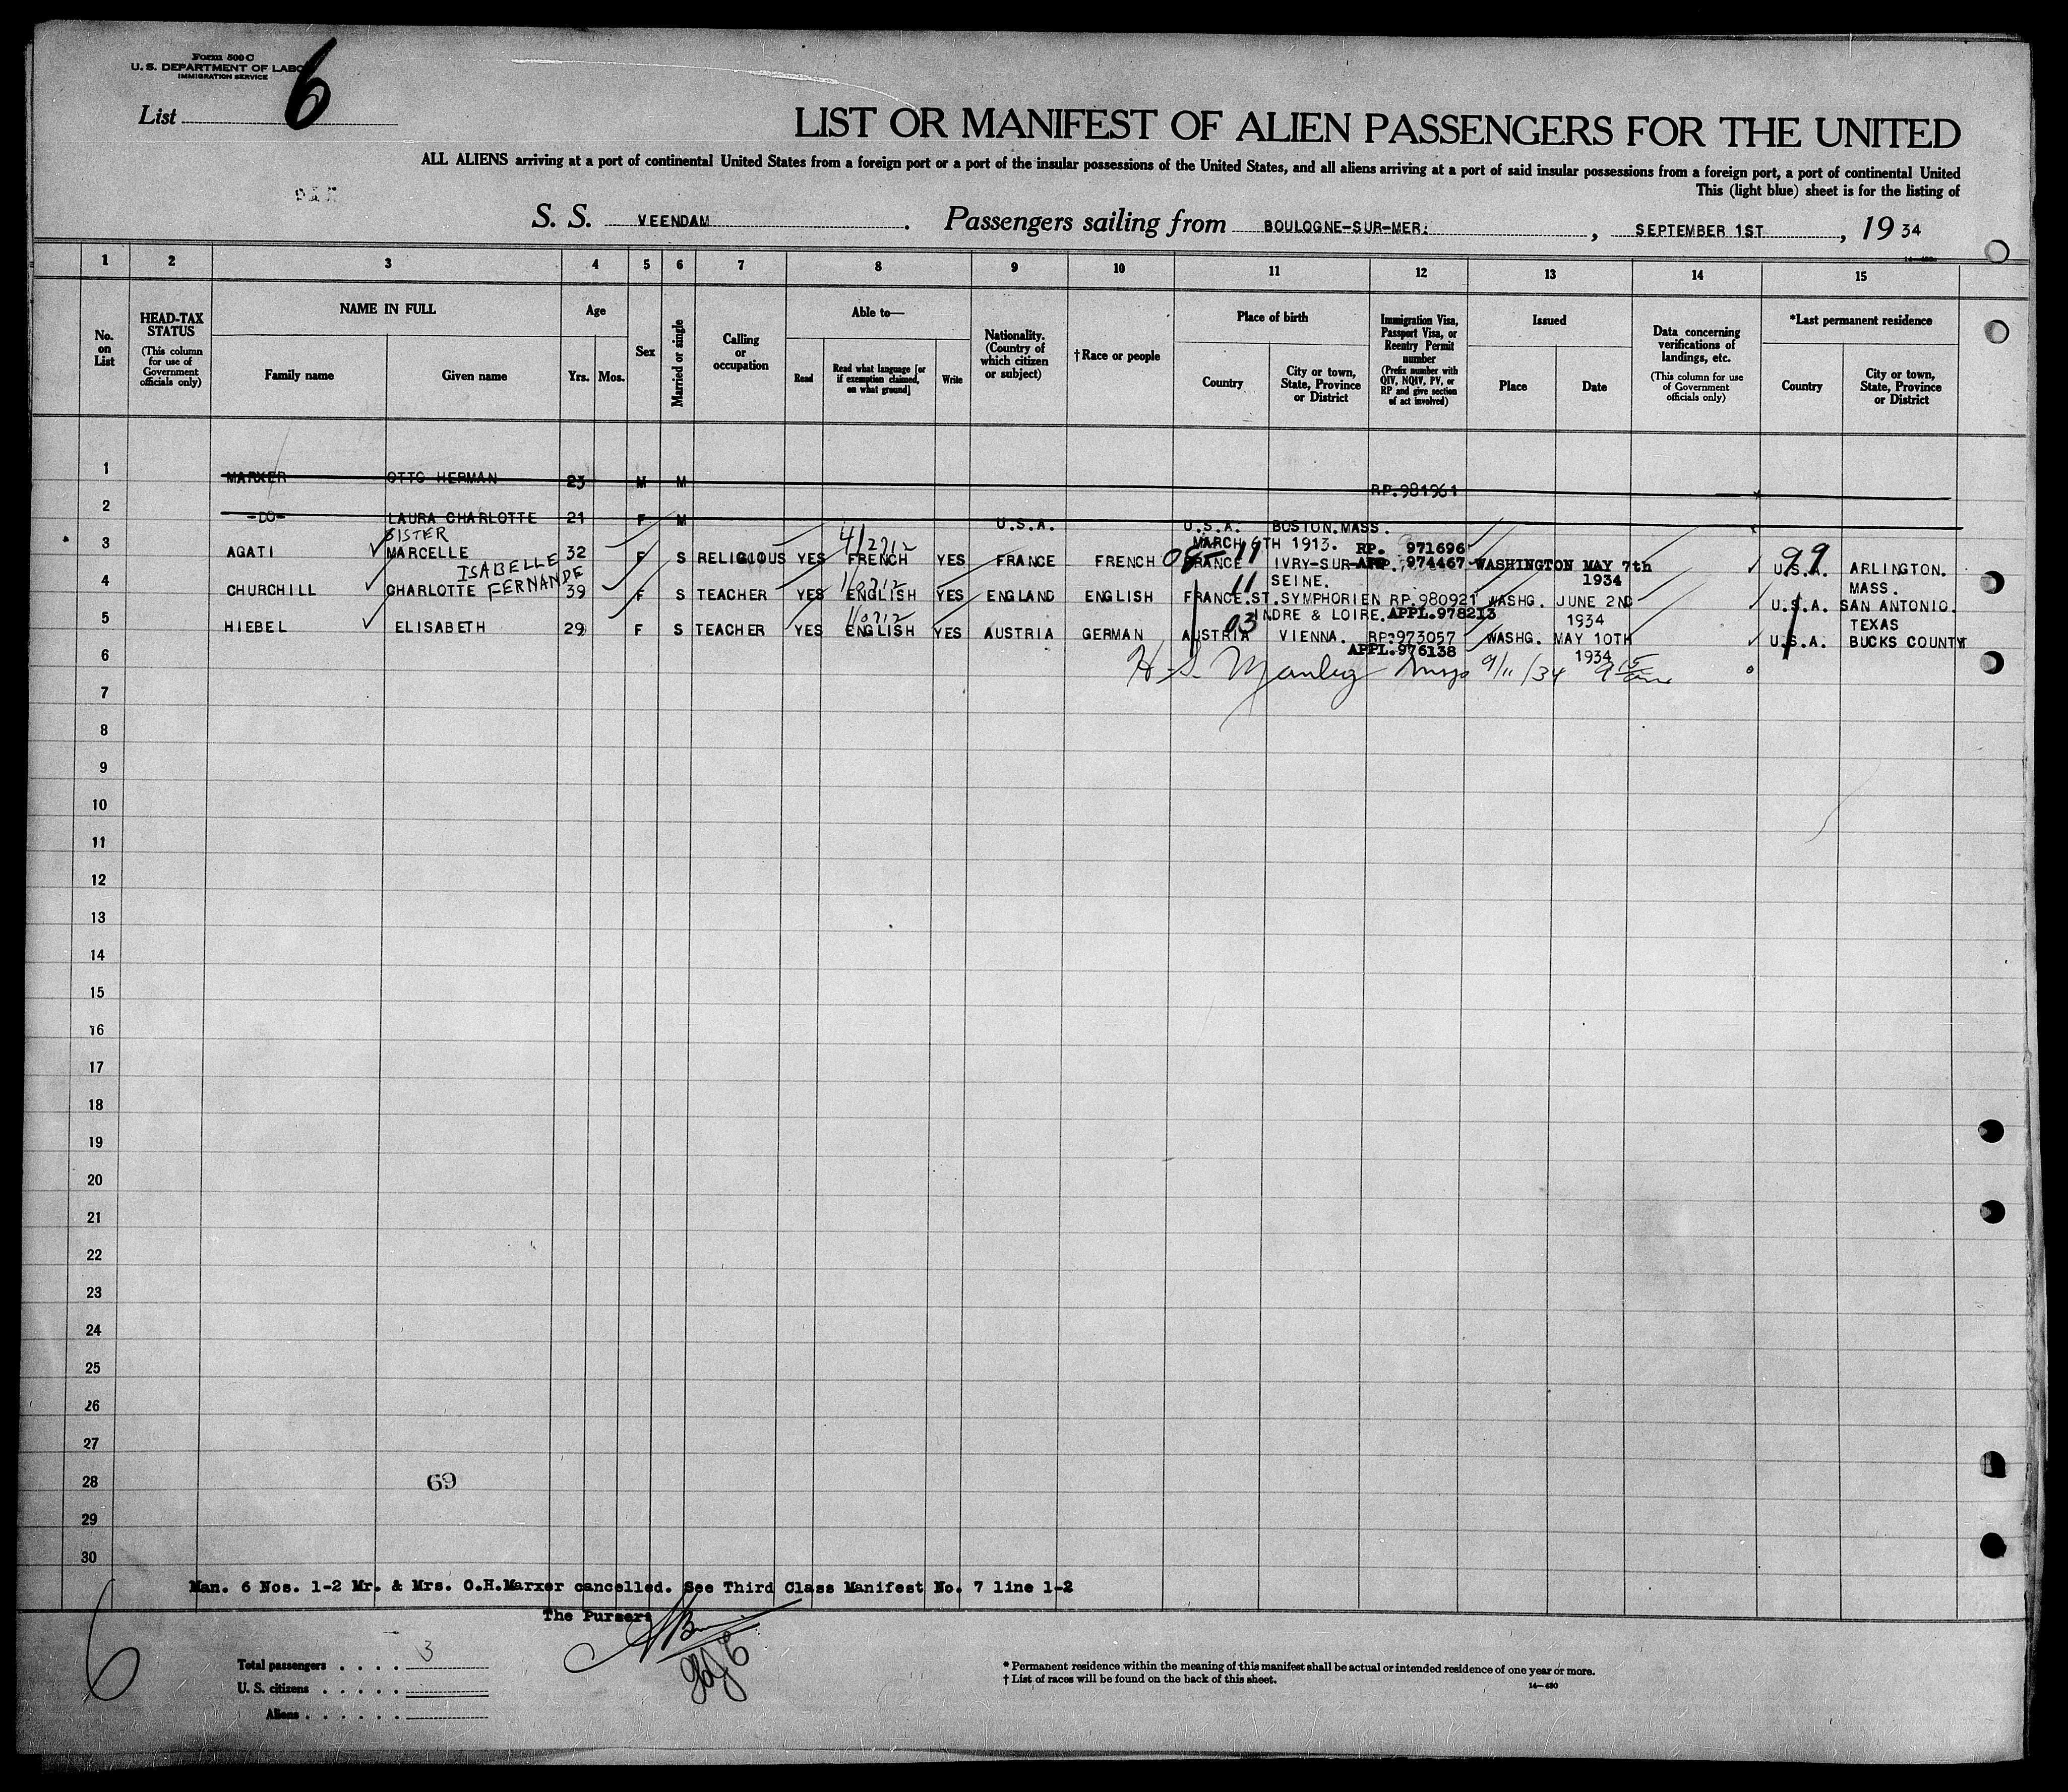 Form 500 C
U. S. DEPARTMENT OF LABO
IMMIGRATION SERVICE
List 6
LIST OR MANIFEST OF ALIEN PASSENGERS FOR THE UNITED
ALL ALIENS arriving at a port of continental United States from a foreign port or a port of the insular possessions of the United States, and all aliens arriving at a port of said insular possessions from a foreign port, a port of continental United
This (light blue) sheet is for the listing of
S. S. VEENDAM . Passengers sailing from BOULOGNE-SUR-MER. , SEPTEMBER 1ST , 19 34
1 2 3 4 5 6 7 8 9 10 11 12 13 14 15
No. on List
HEAD-TAX STATUS (This column for use of Government officials only)
NAME IN FULL
Family name
Given name
Age
Yrs. Mos.
Sex
Married or single
Calling or occupation
Able to—
Read
Read what language [or if exemption claimed, on what ground]
Write
Nationality. (Country of which citizen or subject)
†Race or people
Place of birth
Country
City or town, State, Province or District
Immigration Visa, Passport Visa, or Reentry Permit number (Prefix number with QIV, NQIV, PV, or RP and give section of act involved)
Issued
Place
Date
Data concerning verifications of landings, etc. (This column for use of Government officials only)
*Last permanent residence
Country
City or town, State, Province or District
1 MARXER OTTO HERMAN 23 M M RP.981961
2 -DO- LAURA CHARLOTTE 21 F M U.S.A. U.S.A. BOSTON.MASS.
MARCH 6TH 1913.
SISTER
3 AGATI MARCELLE 32 F S RELIGIOUS YES FRENCH YES FRANCE FRENCH FRANCE IVRY-SUR- RP. 971696 APP. 974467 WASHINGTON MAY 7th 1934 U.S.A. ARLINGTON. MASS.
SEINE.
ISABELLE
4 CHURCHILL CHARLOTTE FERNANDE 39 F S TEACHER YES ENGLISH YES ENGLAND ENGLISH FRANCE. ST.SYMPHORIEN RP.980921 WASHG. JUNE 2ND 1934 U.S.A. SAN ANTONIO. TEXAS
INDRE & LOIRE. APPL.978213
5 HIEBEL ELISABETH 29 F S TEACHER YES ENGLISH YES AUSTRIA GERMAN AUSTRIA VIENNA. RP.973057 WASHG. MAY 10TH 1934 U.S.A. BUCKS COUNTY
APPL.976138
6 H. S. Manley Insp 9/11/34 9 15
7
8
9
10
11
12
13
14
15
16
17
18
19
20
21
22
23
24
25
26
27
28 69
29
30
Man. 6 Nos. 1-2 Mr. & Mrs. O.H.Marxer cancelled. See Third Class Manifest No. 7 line 1-2
The Purser:
6
Total passengers . . . . 3
U. S. citizens . . . . .
Aliens . . . . . .
* Permanent residence within the meaning of this manifest shall be actual or intended residence of one year or more.
† List of races will be found on the back of this sheet.
14—430